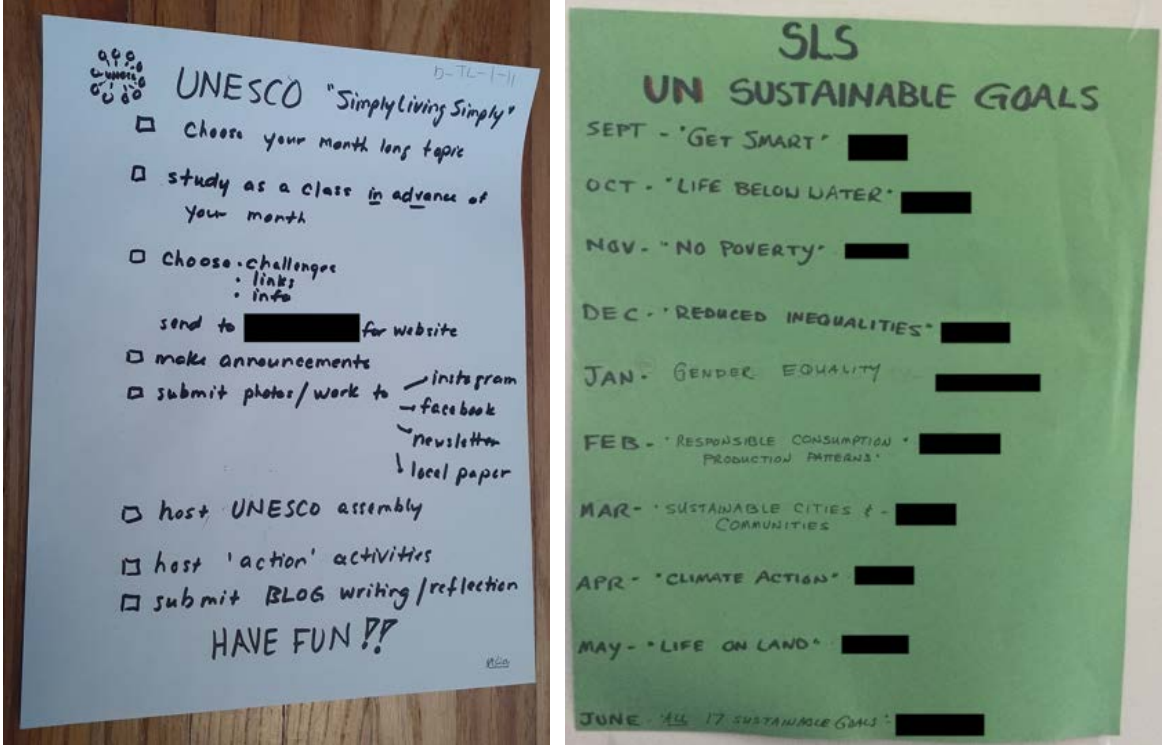 UNESCO "Simply Living Simply"
D-TL-1-11
choose your month long topic
study as a class in advance of
your month
choose • challenges
• links
• info
send to for website
make announcements
submit photos/work to instagram
facebook
newsletter
local paper
host UNESCO assembly
host 'action' activities
submit BLOG writing/reflection
HAVE FUN!!
SLS
UN SUSTAINABLE GOALS
SEPT - "GET SMART"
OCT - "LIFE BELOW WATER"
NOV - "NO POVERTY"
DEC - "REDUCED INEQUALITIES"
JAN - GENDER EQUALITY
FEB - "RESPONSIBLE CONSUMPTION •
PRODUCTION PATTERNS"
MAR - "SUSTAINABLE CITIES & -
COMMUNITIES
APR - "CLIMATE ACTION"
MAY - "LIFE ON LAND"
JUNE - "ALL 17 SUSTAINABLE GOALS" -